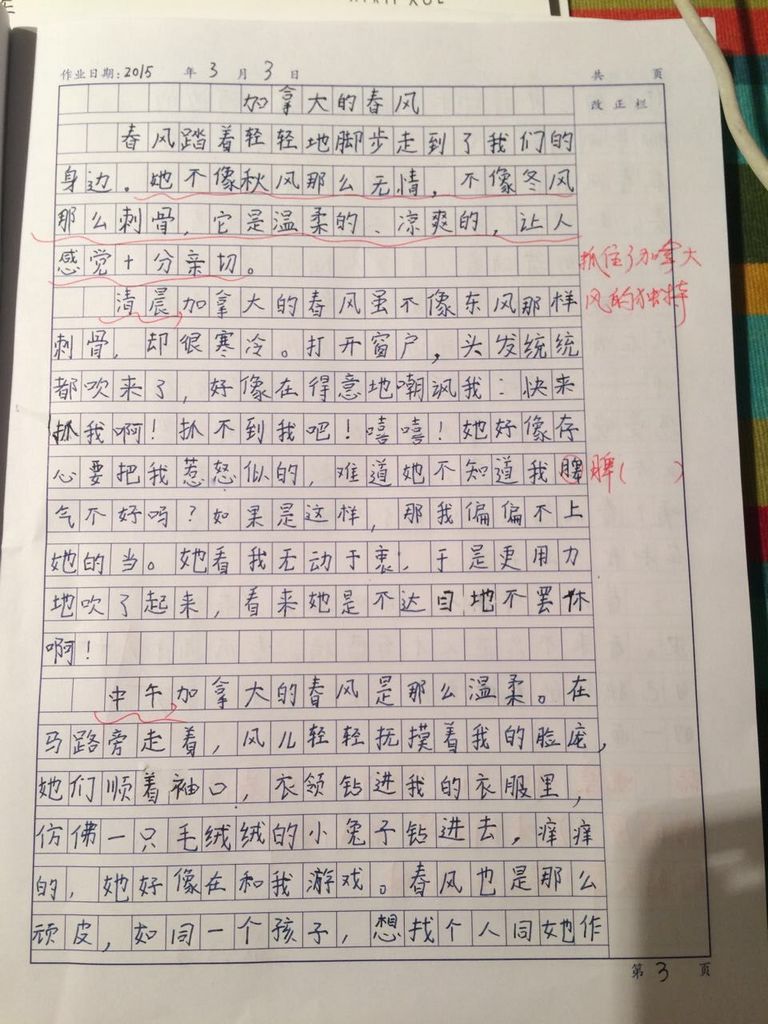 作业日期:2015 年 3 月 3 日 共 页
加拿大的春风 改正栏
春风踏着轻轻地脚步走到了我们的
身边。她不像秋风那么无情，不像冬风
那么刺骨，它是温柔的、凉爽的，让人
感觉十分亲切。
抓住了加拿大
风的独特
清晨加拿大的春风虽不像东风那样
刺骨，却很寒冷。打开窗户，头发统统
都吹来了，好像在得意地嘲讽我：快来
抓我啊！抓不到我吧！嘻嘻！她好像存
心要把我惹怒似的，难道她不知道我脾 脾( )
气不好吗？如果是这样，那我偏偏不上
她的当。她看我无动于衷，于是更用力
地吹了起来，看来她是不达目地不罢休
啊！
中午加拿大的春风是那么温柔。在
马路旁走着，风儿轻轻抚摸着我的脸庞，
她们顺着袖口，衣领钻进我的衣服里，
仿佛一只毛绒绒的小兔子钻进去，痒痒
的，她好像在和我游戏。春风也是那么
顽皮，如同一个孩子，想找个人同她作
第 3 页